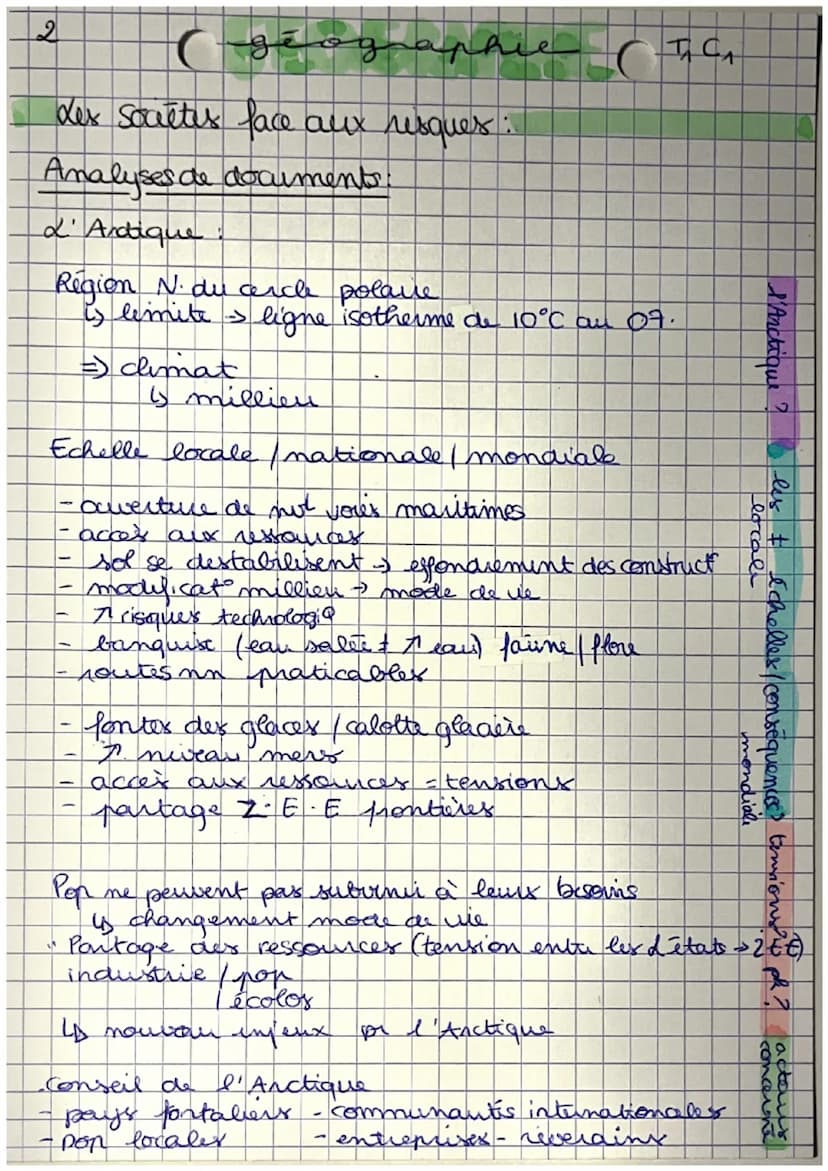 2
géographie
T1 C1
Les sociétés face aux risques :
Analyses de documents :
L'Arctique :
Région N. du cercle polaire
↳ limite → ligne isotherme de 10°C au 07.
⇒ climat
↳ millieu
Echelle locale / nationale / mondiale
- ouverture de nvl voies maritimes
- accès aux ressources
- sol se destabilisent → effondrement des construct°
- modificat° millieu → mode de vie
- ↗ risques technologiq
- banquise (eau salée ≠ ↗ eau) faune / flore
- routes nn praticables
- fontes des glaces / calotte glacière
- ↗ niveau mers
- accès aux ressources = tensions
- partage Z.E.E frontières
Pop ne peuvent pas subvenir à leurs besoins
↳ changement mode de vie
" Partage des ressources (tension entre les états →
industrie / pop
/ écolos
↳ nouveau enjeux pr l'Arctique
.Conseil de l'Arctique
- pays fontaliers - communautés internationales
- pop locales - entreprises - riverains
l'Arctique ?
les ≠ échelles / conséquences ?
locale
mondiale
tensions ? + pk ?
acteurs
concernés